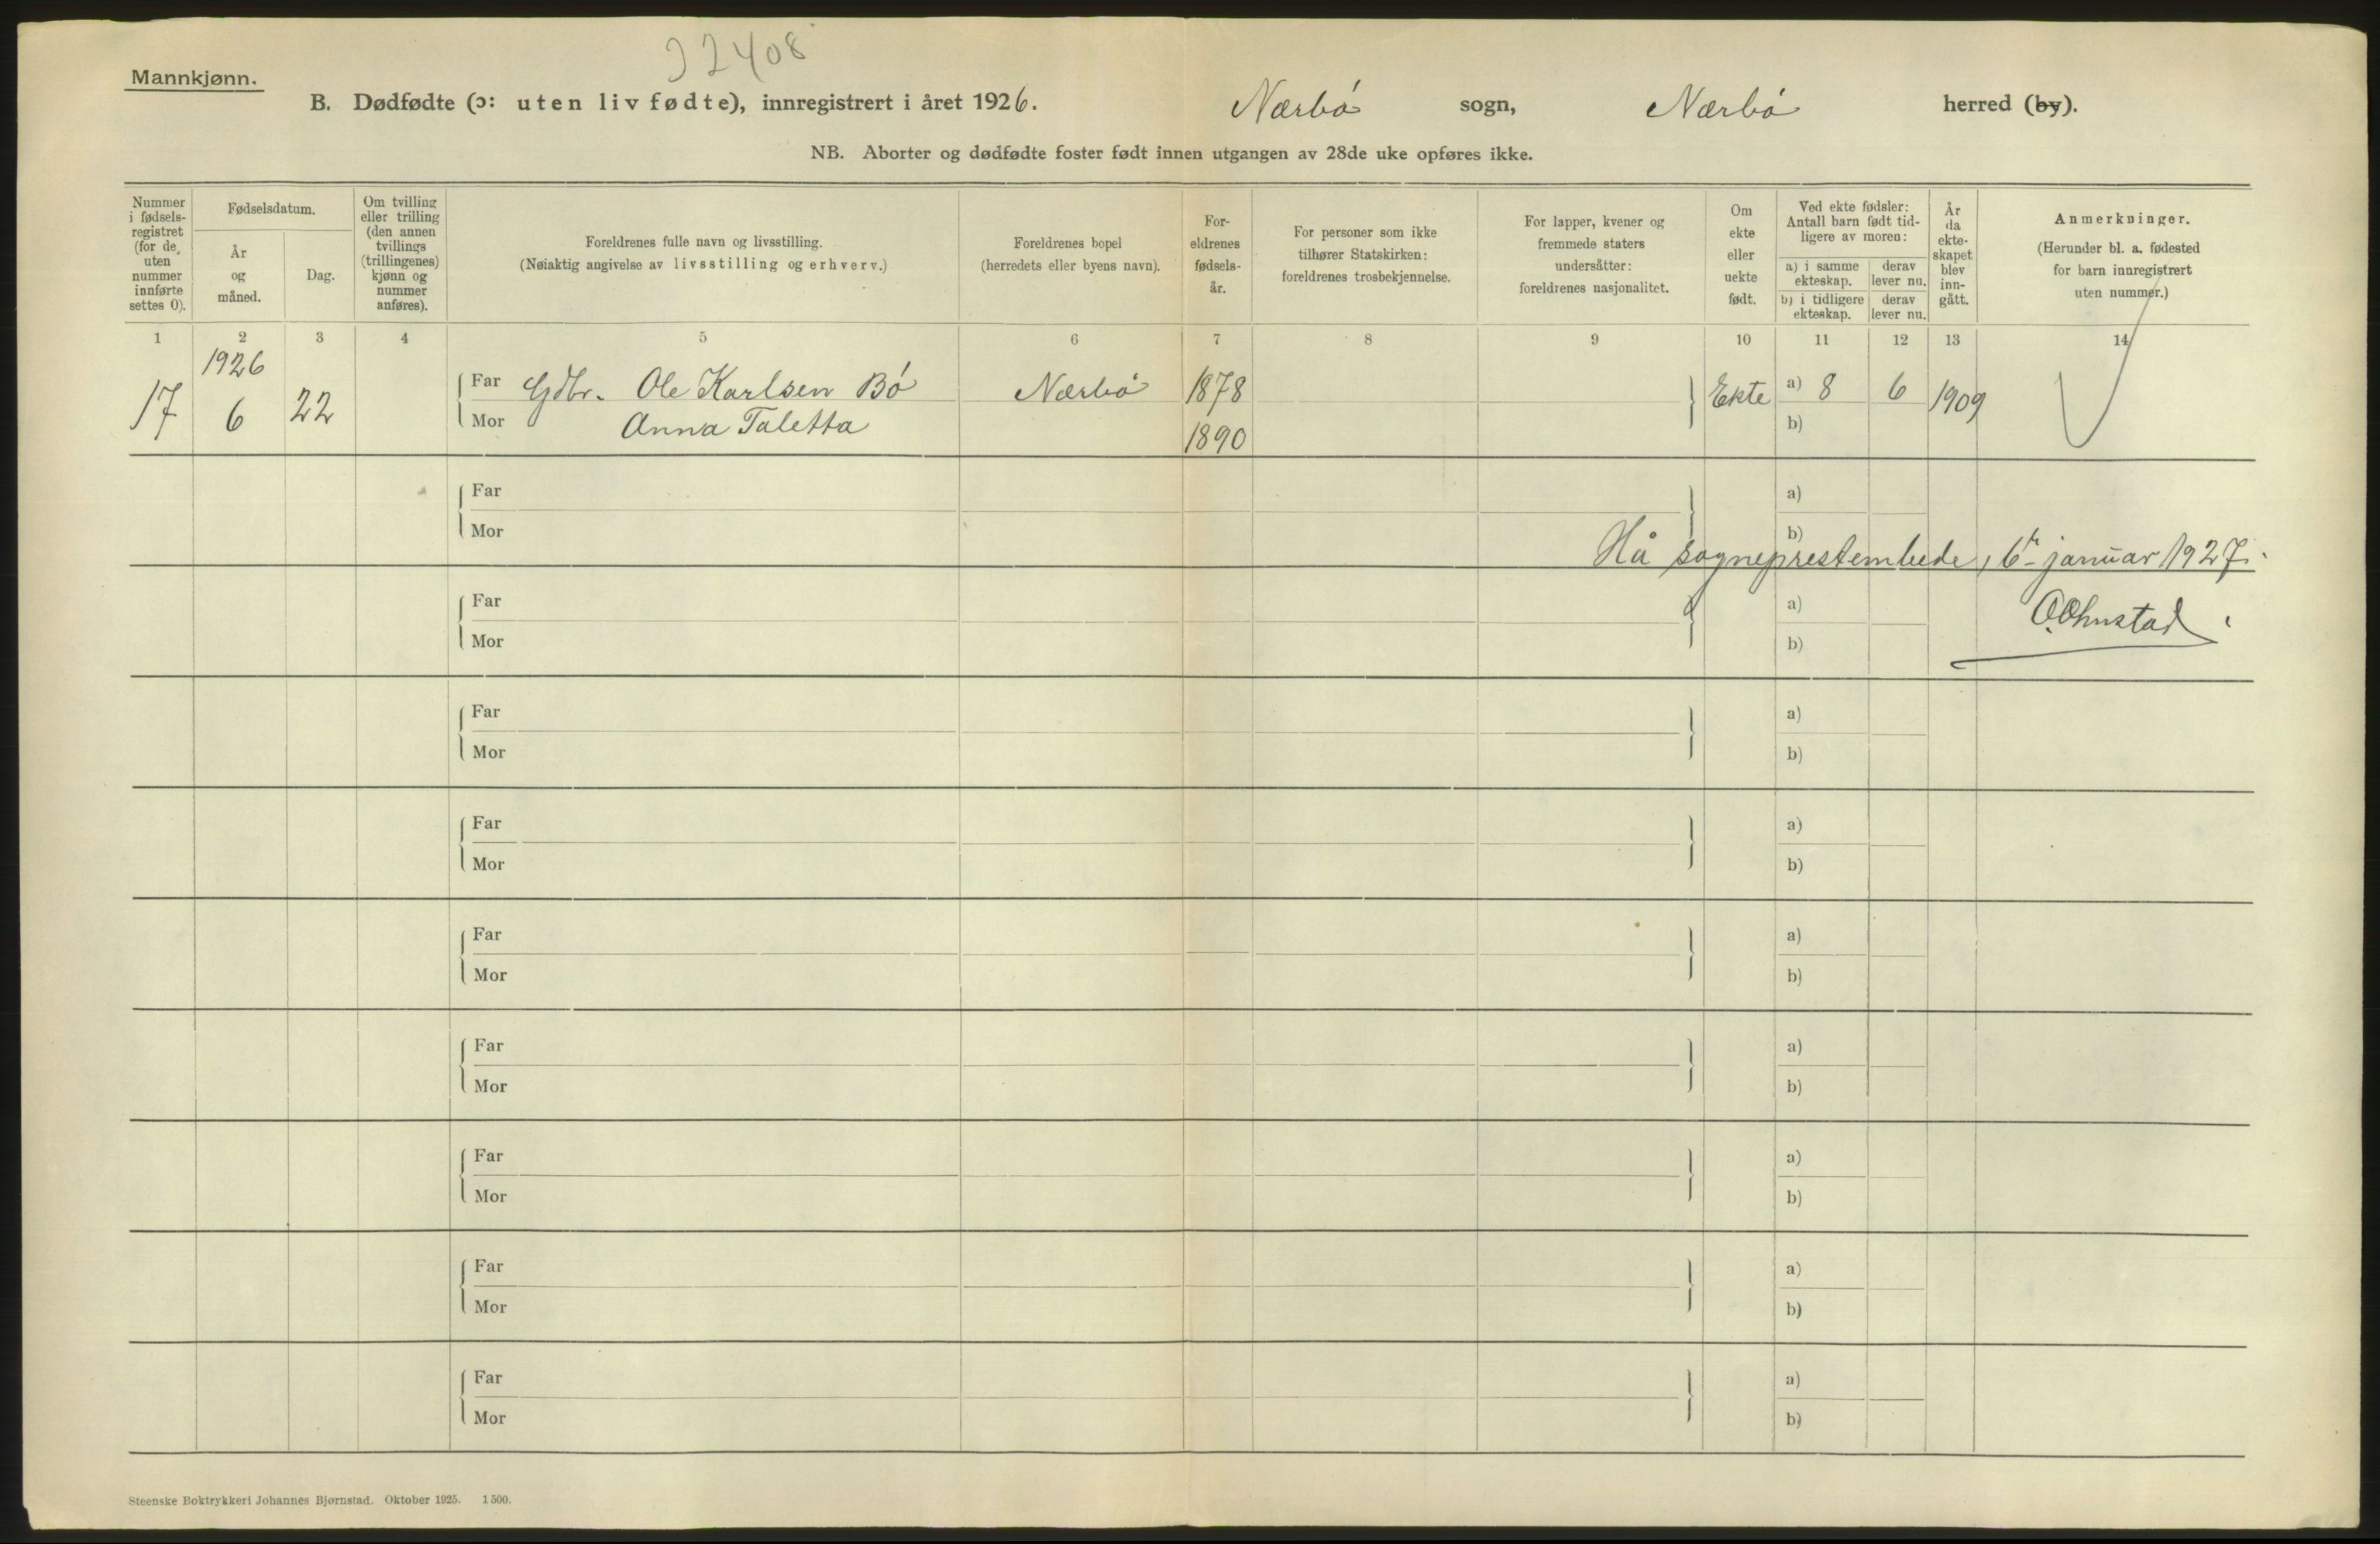 Mannkjønn.
32408
B. Dødfødte (ɔ: uten liv fødte), innregistrert i året 1926. Nærbø sogn, Nærbø herred (by).
NB. Aborter og dødfødte foster født innen utgangen av 28de uke opføres ikke.
Nummer i fødsels-registret (for de uten nummer innførte settes 0).
Fødselsdatum.
År og måned.
Dag.
Om tvilling eller trilling (den annen tvillings (trillingenes) kjønn og nummer anføres).
Foreldrenes fulle navn og livsstilling.
(Nøiaktig angivelse av livsstilling og erhverv.)
Foreldrenes bopel
(herredets eller byens navn).
For-eldrenes fødsels-år.
For personer som ikke tilhører Statskirken: foreldrenes trosbekjennelse.
For lapper, kvener og fremmede staters undersåtter: foreldrenes nasjonalitet.
Om ekte eller uekte født.
Ved ekte fødsler: Antall barn født tid-ligere av moren:
a) i samme ekteskap.
derav lever nu.
b) i tidligere ekteskap.
derav lever nu.
År da ekte-skapet blev inn-gått.
Anmerkninger.
(Herunder bl. a. fødested for barn innregistrert uten nummer.)
1 2 3 4 5 6 7 8 9 10 11 12 13 14
1926
17 6 22 Far Gdbr. Ole Karlsen Bø Nærbø 1878 Ekte a) 8 6 1909
Mor Anna Taletta 1890 b)
Far a)
Mor b)
Hå sogneprestembede, 6. januar 1927.
Far a)
Mor b)
Far a)
Mor b)
Far a)
Mor b)
Far a)
Mor b)
Far a)
Mor b)
Far a)
Mor b)
Far a)
Mor b)
Far a)
Mor b)
Steenske Boktrykkeri Johannes Bjørnstad. Oktober 1925. 1500.